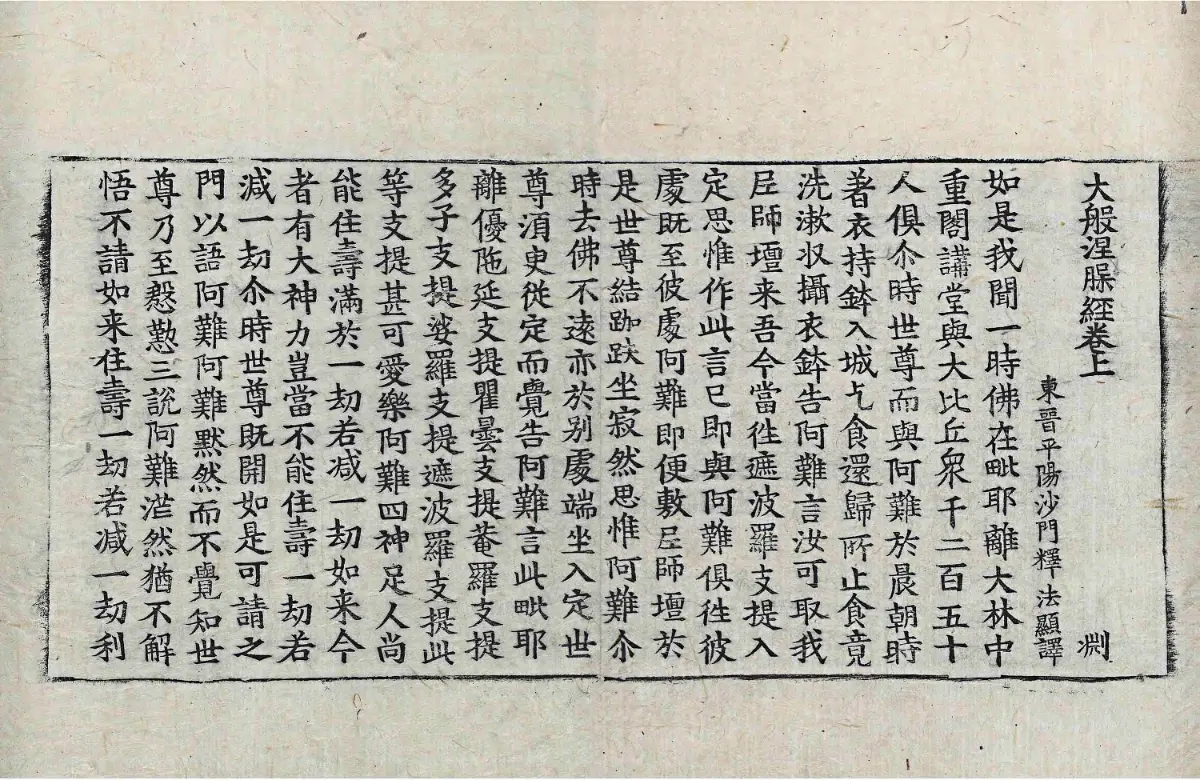 大般涅槃經卷上 渕
東晉平陽沙門釋法顯譯
如是我聞一時佛在毗耶離大林中
重閣講堂與大比丘衆千二百五十
人俱尒時世尊而與阿難於晨朝時
著衣持鉢入城乞食還歸所止食竟
洗漱収攝衣鉢告阿難言汝可取我
𡰱師壇来吾今當徃遮波羅支提入
定思惟作此言已即與阿難俱徃彼
處既至彼處阿難即便敷𡰱師壇於
是世尊結跏趺坐寂然思惟阿難尒
時去佛不遠亦於别處端坐入定世
尊湏臾從定而覺告阿難言此毗耶
離優陁延支提瞿曇支提菴羅支提
多子支提娑羅支提遮波羅支提此
等支提甚可愛樂阿難四神足人尚
能住壽滿於一劫若减一劫如来今
者有大神力豈當不能住壽一劫若
減一劫尒時世尊既開如是可請之
門以語阿難阿難默然而不覺知世
尊乃至慇懃三說阿難茫然猶不解
悟不請如来住壽一劫若减一劫利